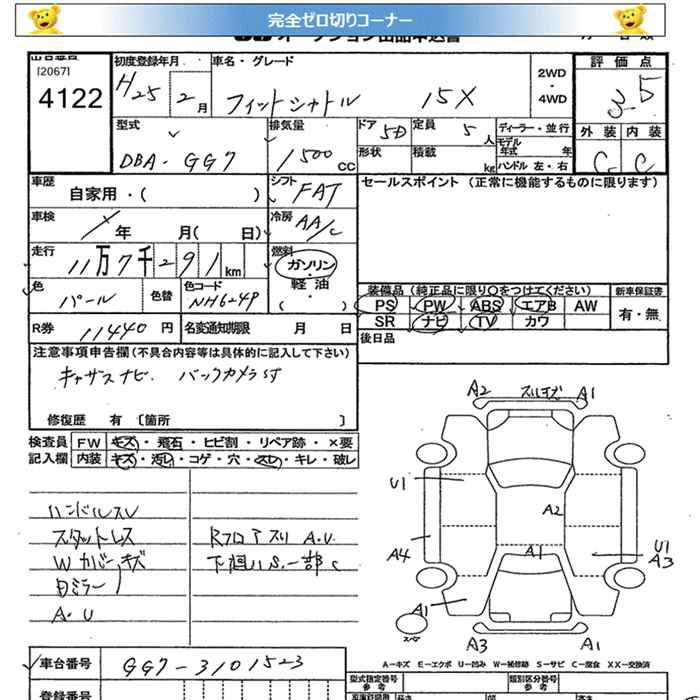 完全ゼロ切りコーナー
出品番号 初度登録年月 車名・グレード 2WD・4WD 評価点
[2067]
4122 H25 2月 フィットシャトル 15X 3.5
型式 排気量 ドア 5D 定員 5人 ディーラー・並行 外装 内装
DBA-GG7 1500cc 形状 積載 kg モデル年式 年 C C
ハンドル 左・右
車歴 自家用・( ) シフト FAT セールスポイント (正常に機能するものに限ります)
車検 年 月( 日) 冷房 AA/C
走行 11万7千291km 燃料 ガソリン・軽油・( )
色 パール 色替 色コード NH624P
装備品 (純正品に限り○をつけてください) 新車保証書
PS PW ABS エアB AW 有・無
SR ナビ TV カワ
R券 11440円 名変通知期限 月 日 後日品
注意事項申告欄(不具合内容等は具体的に記入して下さい)
キャサスナビ. バックカメラ
修復歴 有 〔箇所 〕
検査員記入欄 FW キズ・飛石・ヒビ割・リペア跡・×要
内装 キズ・汚レ・コゲ・穴・スレ・キレ・破レ
ハンドルスレ
スタットレス
Wカバーキズ
ミラー
A.U
Rフロアスリ A.U
下廻リS.一部C
A2 A1
U1 A2
A4 A1 U1 A3
A1
スペア
A3 A1
A-キズ E-エクボ U-凹み W-補修跡 S-サビ C-腐食 XX-交換済
車台番号 GG7-3101523
型式指定番号 参考 類別区分番号 参考
登録番号